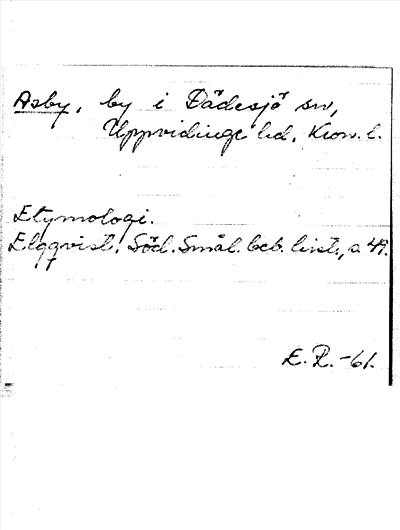 Asby, by i Dädesjö sn,
Uppvidinge hd, Kron. l.
Etymologi.
Elgqvist, Söd. Smål. beb. hist., s. 49.
E. R. -61.